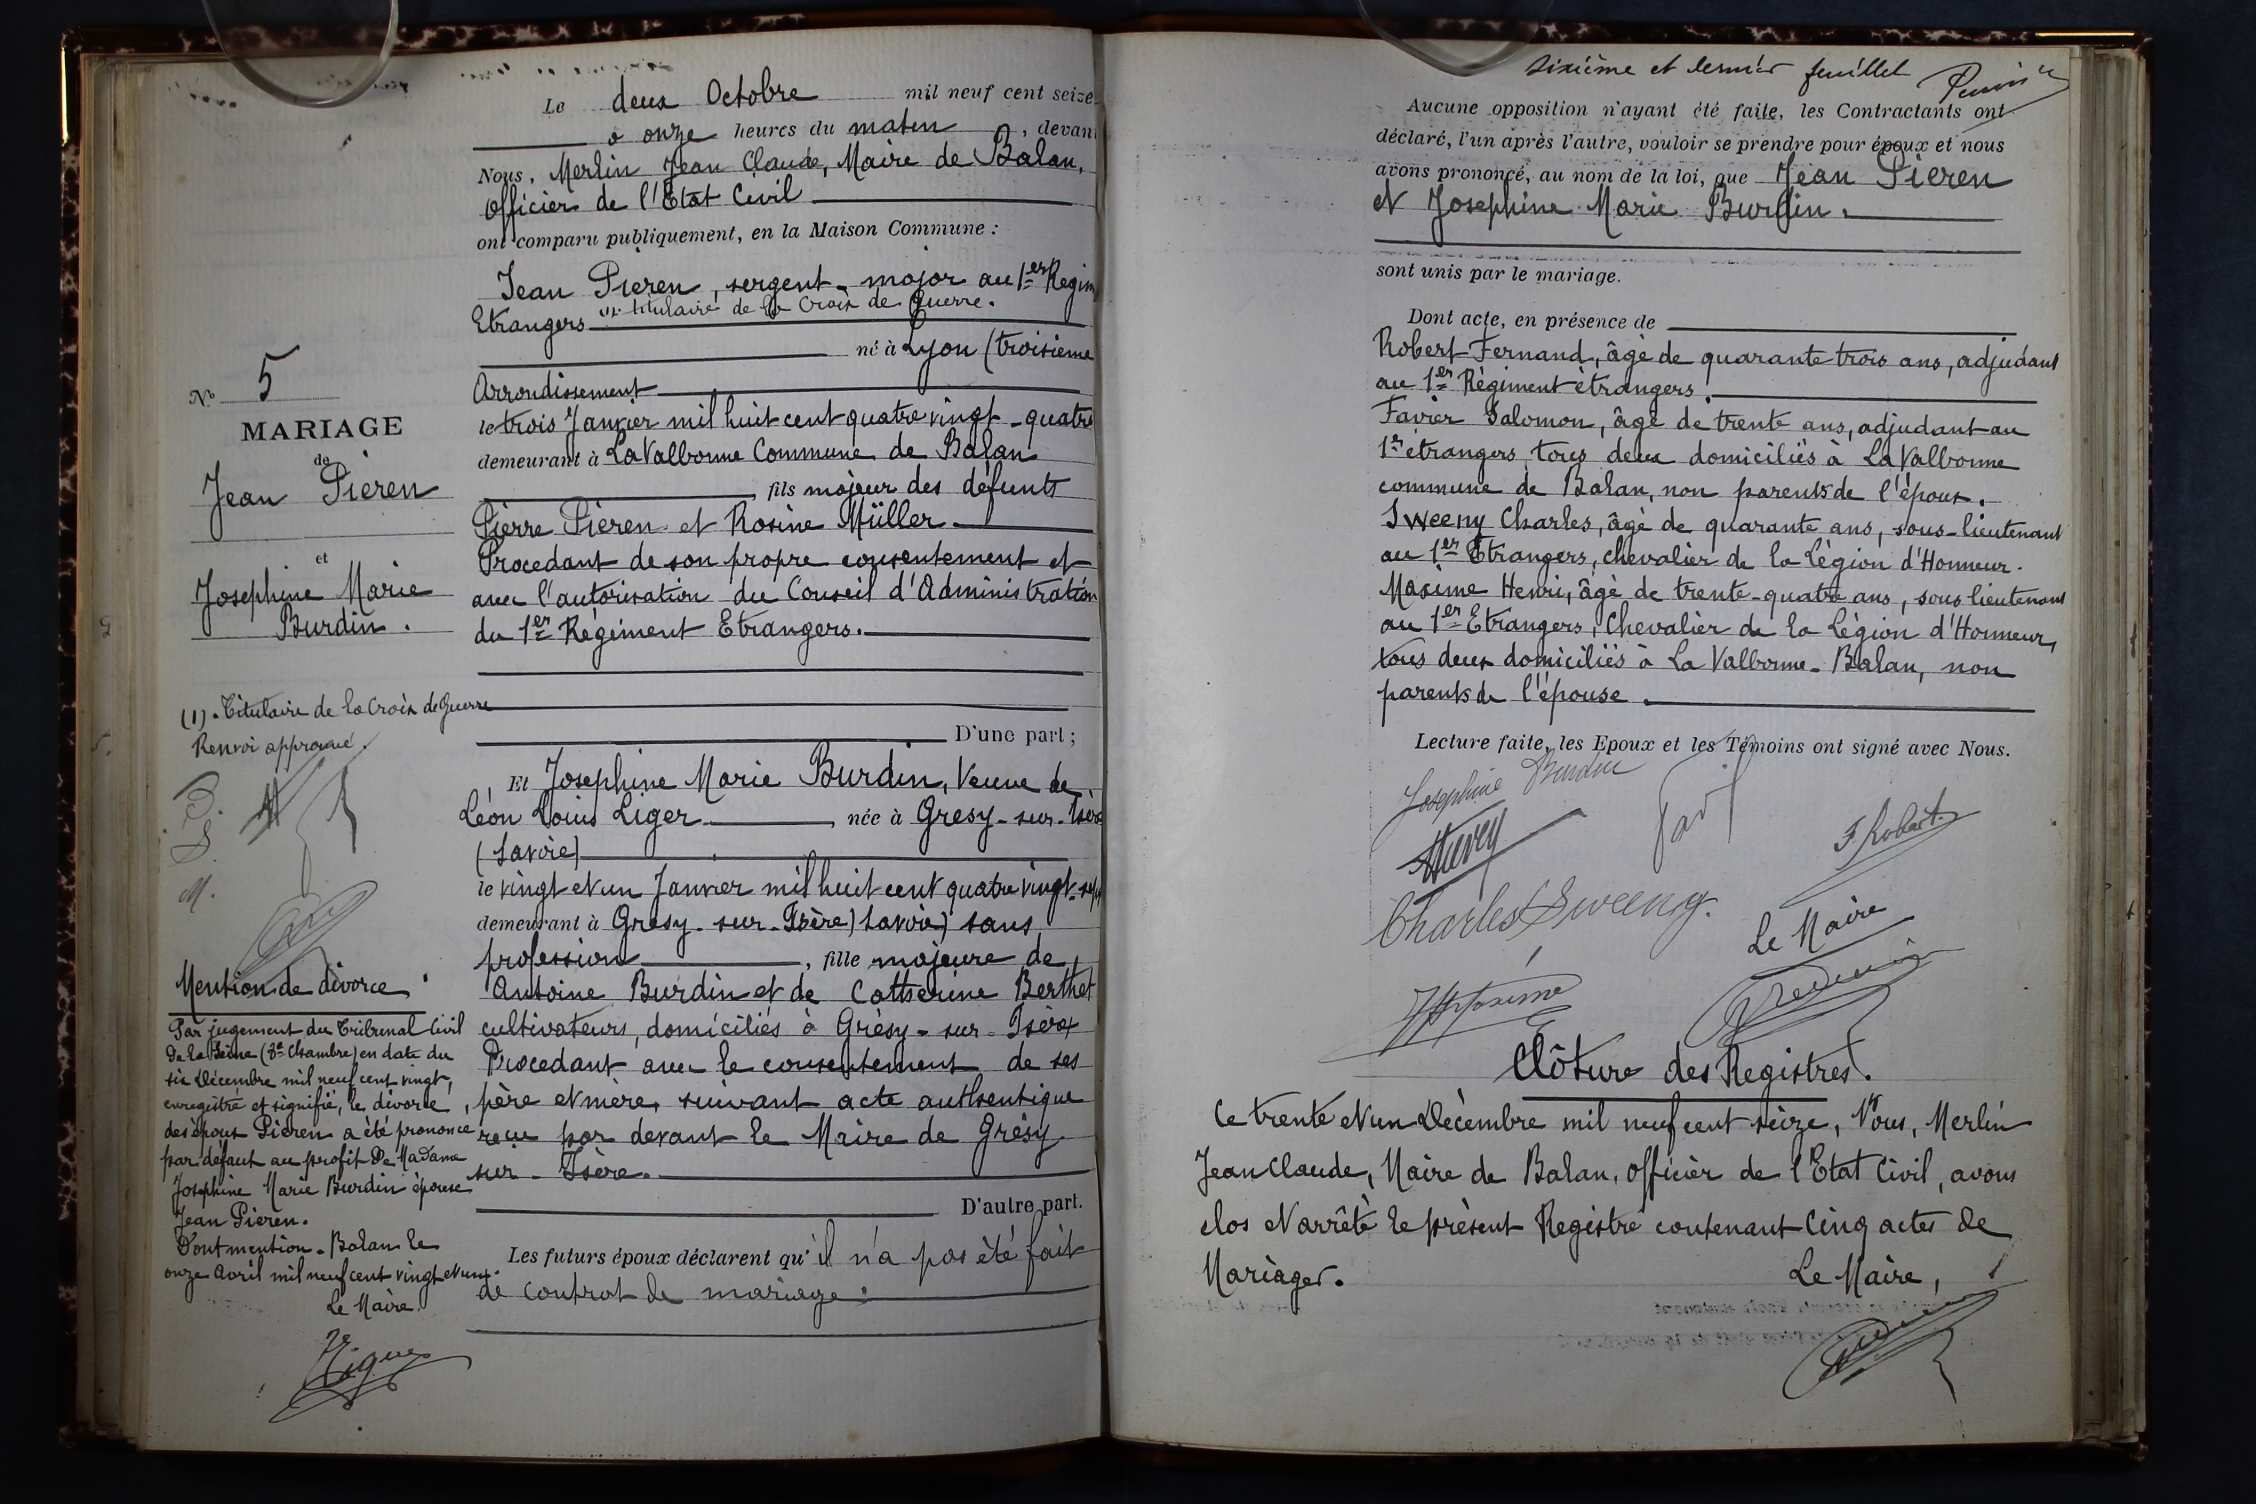 Le deux Octobre mil neuf cent seize
à onze heures du matin, devant
Nous, Merlin Jean Claude, Maire de Balan,
Officier de l'Etat Civil
ont comparu publiquement, en la Maison Commune :
Jean Pieren, sergent-major au 1er Regim
Etrangers (1). titulaire de la Croix de Guerre.
né à Lyon (troisième
Arrondissement
le trois Janvier mil huit cent quatre vingt-quatre
demeurant à La Valbonne Commune de Balan
, fils majeur des défunts
Pierre Pieren et Rosine Müller.
Procedant de son propre consentement et
avec l'autorisation du Conseil d'Administration
du 1er Régiment Etrangers.
D'une part ;
Et Josephine Marie Burdin, Veuve de
Léon Louis Liger, née à Gresy-sur-Isère
(Savoie)
le vingt et un Janvier mil huit cent quatre vingt-sept
demeurant à Gresy-sur-Isère) Savoie) sans
profession, fille majeure de
Antoine Burdin et de Catherine Berthet
cultivateurs, domiciliés à Grésy-sur-Isère
Procedant avec le consentement de ses
père et mère, suivant acte authentique
reçu par devant le Maire de Grésy
sur-Isère.
D'autre part.
Les futurs époux déclarent qu'il n'a pas été fait
de contrat de mariage.
No 5
MARIAGE
de
Jean Pieren
et
Josephine Marie
Burdin.
(1). Titulaire de la Croix de Guerre
Renvoi approuvé.
M.
Mention de divorce
Par jugement du Tribunal Civil
de la Seine (8e Chambre) en date du
six Décembre mil neuf cent vingt,
enregistré et signifié, le divorce
des époux Pieren a été prononcé
par défaut au profit de Madame
Josephine Marie Burdin épouse
Jean Pieren.
Dont mention. Balan le
onze Avril mil neuf cent vingt et un.
Le Maire
Sixième et dernier feuillet
Aucune opposition n'ayant été faite, les Contractants ont
déclaré, l'un après l'autre, vouloir se prendre pour époux et nous
avons prononcé, au nom de la loi, que Jean Pieren
et Josephine Marie Burdin.
sont unis par le mariage.
Dont acte, en présence de
Robert Fernand, âgé de quarante trois ans, adjudant
au 1er Régiment étrangers.
Favier Salomon, âgé de trente ans, adjudant au
1er étrangers, tous deux domiciliés à La Valbonne
commune de Balan, non parents de l'époux.
Sweeny Charles, âgé de quarante ans, sous-lieutenant
au 1er Etrangers, chevalier de la Légion d'Honneur.
Maxime Henri, âgé de trente-quatre ans, sous lieutenant
au 1er Etrangers, Chevalier de la Légion d'Honneur,
tous deux domiciliés à La Valbonne-Balan, non
parents de l'épouse.
Lecture faite, les Epoux et les Témoins ont signé avec Nous.
Josephine Burdin
F Robert.
Charles Sweeny.
Le Maire
Clôture des Registres.
Ce trente et un Décembre mil neuf cent seize, Nous, Merlin
Jean Claude, Maire de Balan, officier de l'Etat Civil, avons
clos et arrêté le présent Registre contenant Cinq actes de
Mariages.
Le Maire,